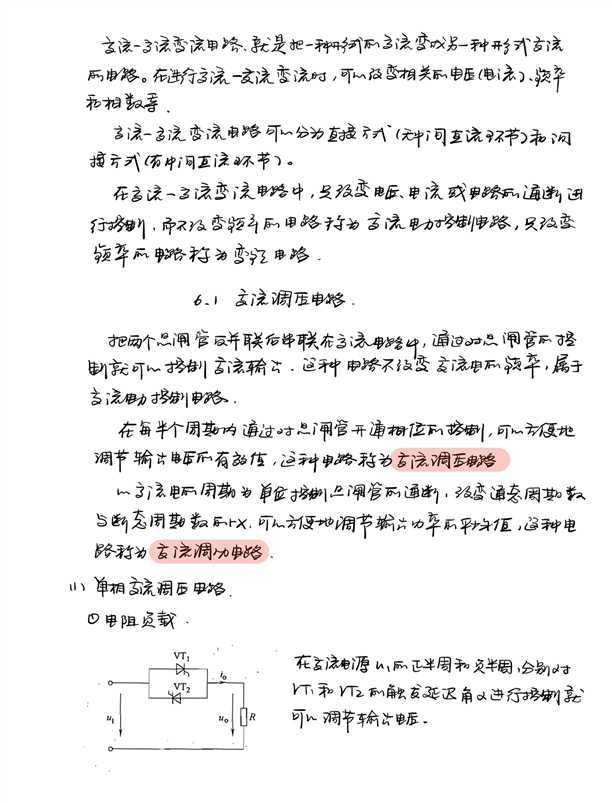 交流-交流变流电路、就是把一种形式的交流变成另一种形式交流
的电路。在进行交流-交流变流时,可以改变相关的电压(电流)、频率
和相数等.
交流-交流变流电路可以分为直接方式(无中间直流环节)和间
接方式(有中间直流环节)。
在交流-交流变流电路中,只改变电压、电流或电路的通断进
行控制,而不改变频率的电路称为交流电力控制电路,只改变
频率的电路称为变频电路.
6.1 交流调压电路.
把两个晶闸管反并联后串联在交流电路中,通过对晶闸管的控
制就可以控制交流输出.这种电路不改变交流电的频率,属于
交流电力控制电路.
在每半个周期内通过对晶闸管开通相位的控制,可以方便地
调节输出电压的有效值,这种电路称为交流调压电路
以交流电的周期为单位控制晶闸管的通断,改变通态周期数
与断态周期数的比,可以方便地调节输出功率的平均值,这种电
路称为交流调功电路.
(1) 单相交流调压电路.
① 电阻负载.
VT1
VT2
io
u1
uo
R
在交流电源u1的正半周和负半周,分别对
VT1和VT2的触发延迟角α进行控制就
可以调节输出电压.